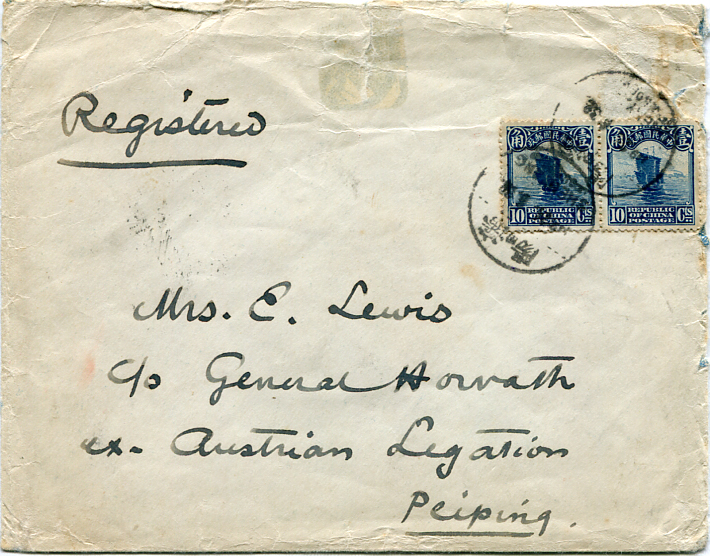 Registered
中華民國郵政
壹 角
10 Cts
REPUBLIC
OF CHINA
POSTAGE
中華民國郵政
壹 角
10 Cts
REPUBLIC
OF CHINA
POSTAGE
Mrs. E. Lewis
c/o General Horvath
ex- Austrian Legation
Peiping.